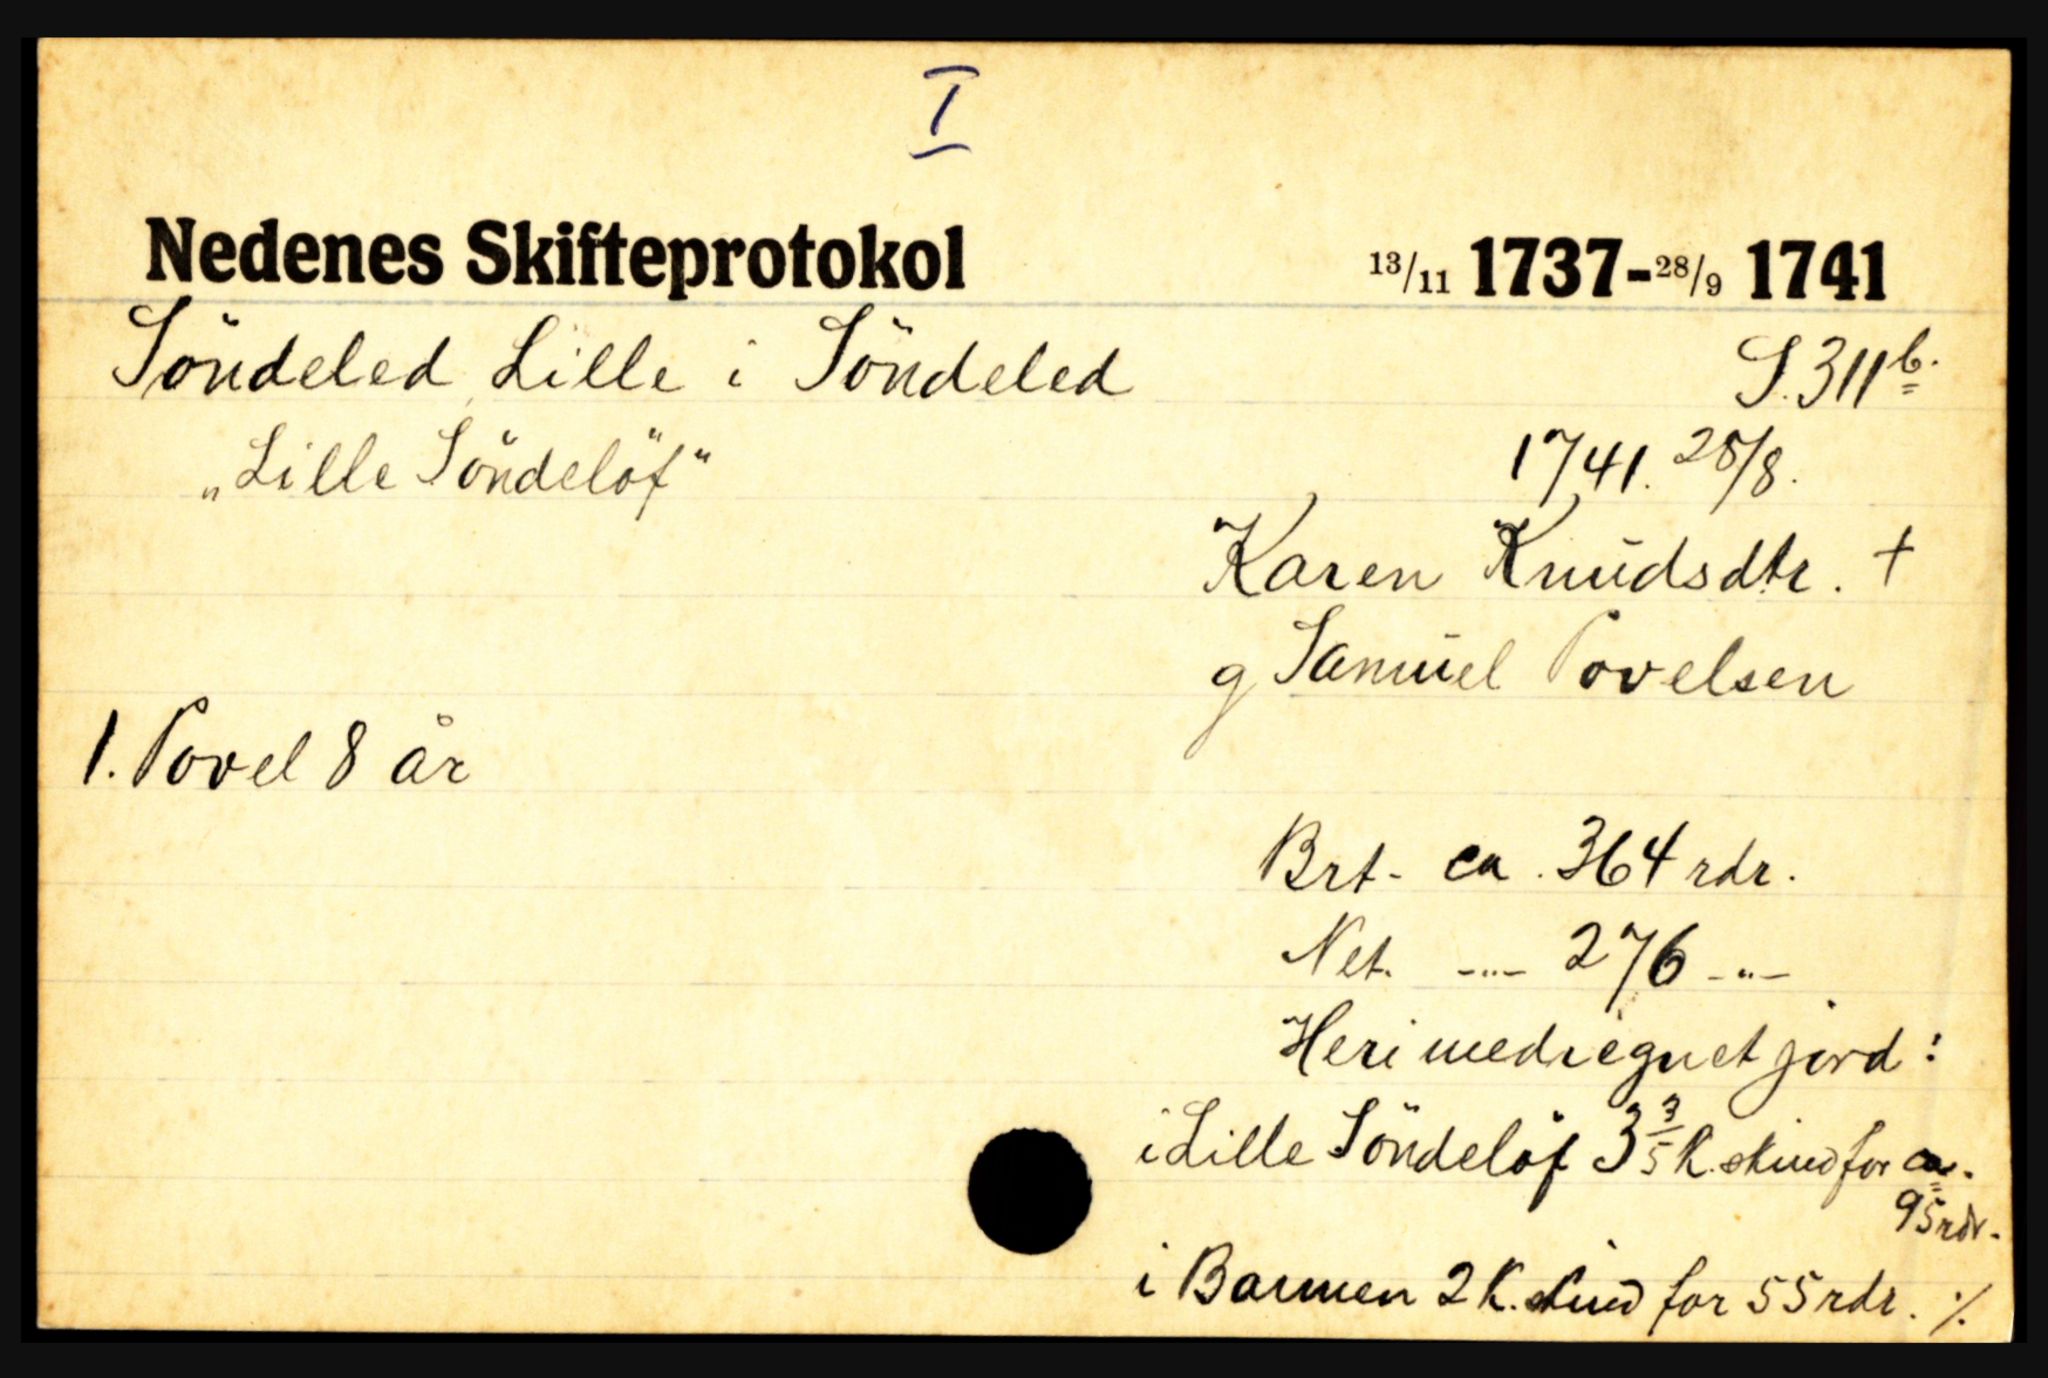 I
Nedenes Skifteprotokol 13/11 1737-28/9 1741
Söndeled, Lille i Söndeled S. 311b.
„Lille Söndelöf" 1741. 28/8.
Karen Knudsdtr. +
g Samuel Povelsen
1. Povel 8 år
Brt. ca. 364 rdr.
Net. -"- 276 -"-
Heri medregnet jord:
i Lille Söndelöf 3 3/5 K. skind for ca.
95 rdr.
i Barmen 2 K. skind for 55 rdr. ./.